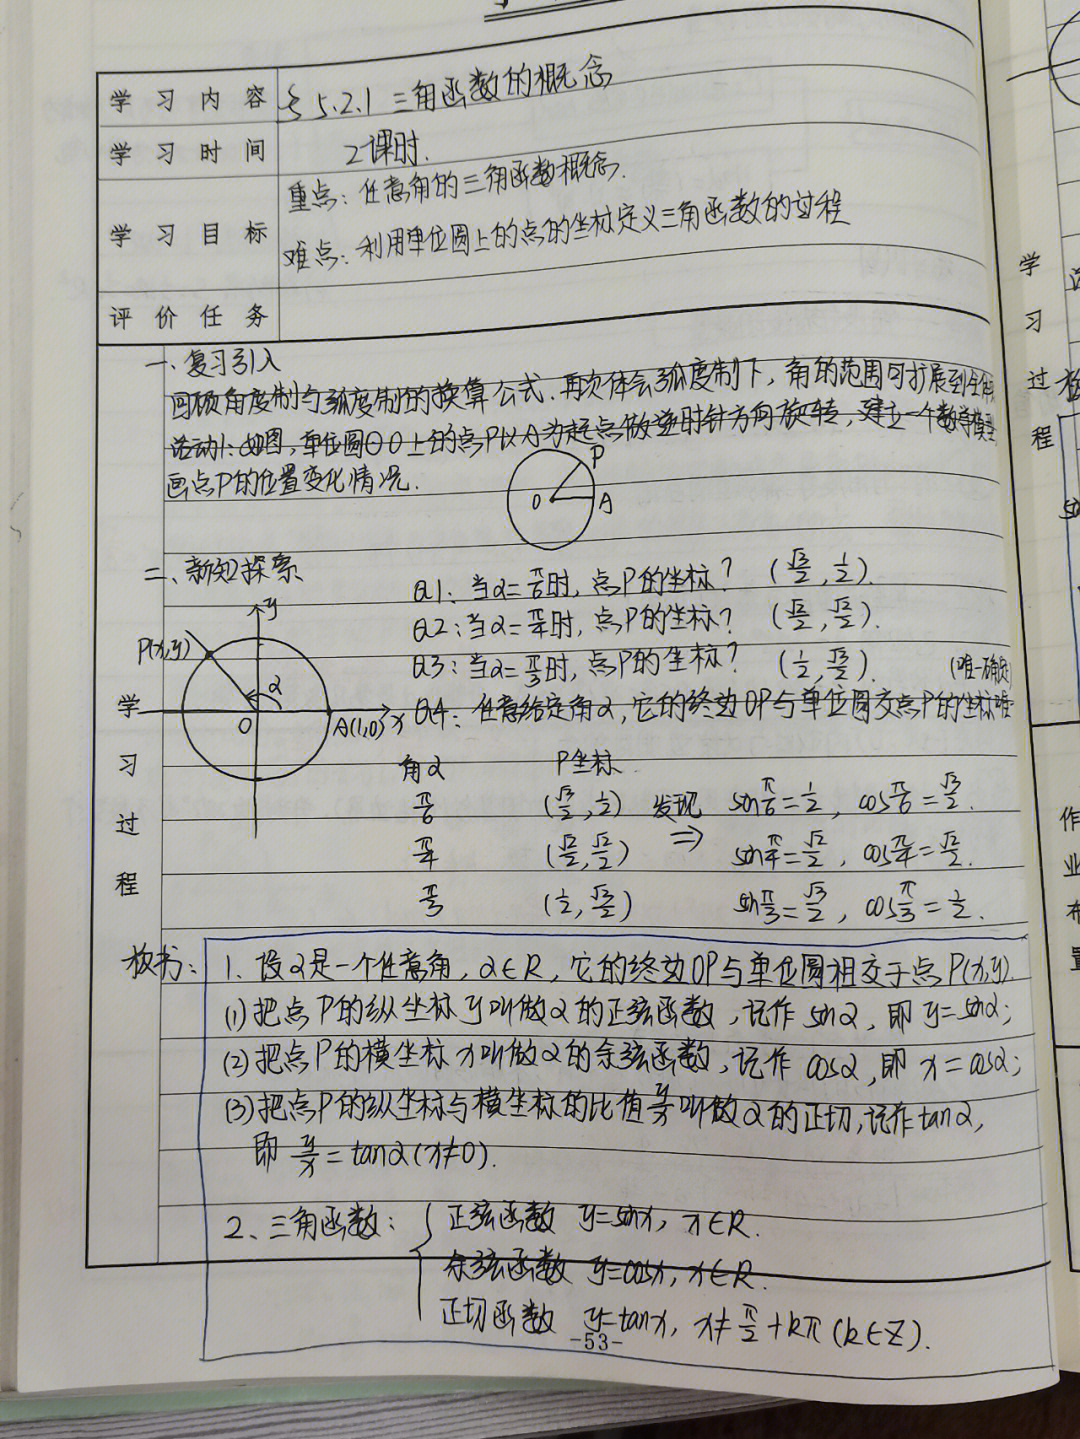 学习内容 § 5.2.1 三角函数的概念
学习时间 2课时.
学习目标 重点：任意角的三角函数概念.
难点：利用单位圆上的点的坐标定义三角函数的过程
评价任务
一、复习引入
回顾角度制与弧度制的换算公式.再次体会弧度制下，角的范围可扩展到全体
活动1：如图，单位圆⊙O上的点P以A为起点做逆时针方向旋转，建立一个数学模型
画点P的位置变化情况.
P
O A
二、新知探索
Q1：当α=π/6时，点P的坐标？ (√3/2, 1/2).
Q2：当α=π/4时，点P的坐标？ (√2/2, √2/2).
Q3：当α=π/3时，点P的坐标？ (1/2, √3/2). (唯一确定)
Q4：任意给定角α，它的终边OP与单位圆交点P的坐标唯
y
P(x,y)
α
O A(1,0) x
学习过程
角α P坐标
π/6 (√3/2, 1/2) 发现 sinπ/6=1/2, cosπ/6=√3/2.
π/4 (√2/2, √2/2) ⇒ sinπ/4=√2/2, cosπ/4=√2/2.
π/3 (1/2, √3/2) sinπ/3=√3/2, cosπ/3=1/2.
板书：
1. 设α是一个任意角，α∈R，它的终边OP与单位圆相交于点P(x,y)
(1)把点P的纵坐标y叫做α的正弦函数，记作sinα，即y=sinα；
(2)把点P的横坐标x叫做α的余弦函数，记作cosα，即x=cosα；
(3)把点P的纵坐标与横坐标的比值y/x叫做α的正切，记作tanα，
即 y/x=tanα(x≠0).
2、三角函数： { 正弦函数 y=sinx, x∈R.
余弦函数 y=cosx, x∈R.
正切函数 y=tanx, x≠π/2+kπ(k∈Z).
-53-
学习过程
作业布置